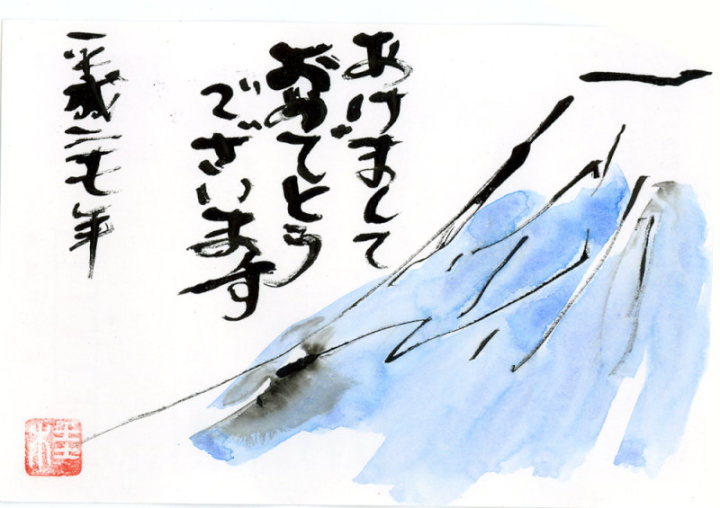 あけまして
おめでとう
ございます
平成二七年
桂